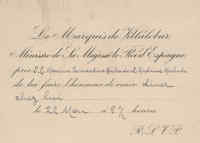 Le Marquis de Villalobar
Ministre de Sa Majesté le Roi d'Espagne
prie S.E. Monsieur
de lui faire l'honneur de venir dîner
chez lui
le 22 Mars à 8 heures
R.S.V.P.